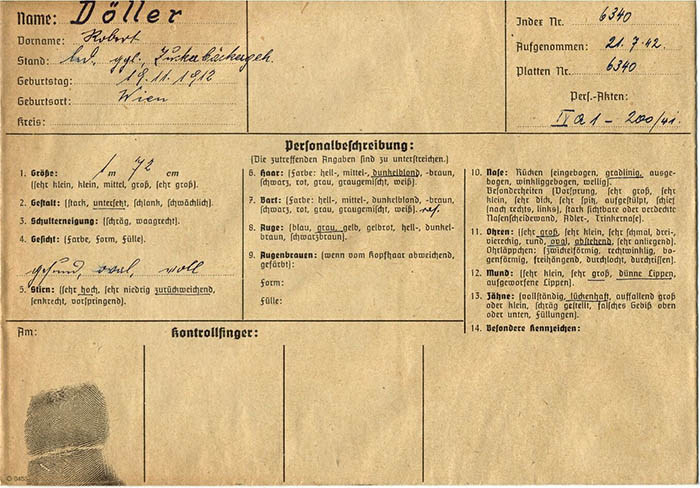 Name: Döller
Vorname: Robert
Stand: led. ggl. Zuckerbäckergeh.
Geburtstag: 19.11.1912
Geburtsort: Wien
Kreis:
Index Nr. 6340
Aufgenommen: 21.7.42.
Platten Nr. 6340
Pers.-Akten:
IV a 1 – 200/41.
Personalbeschreibung:
(Die zutreffenden Angaben sind zu unterstreichen.)
1. Größe: 1 m 72 cm
(sehr klein, klein, mittel, groß, sehr groß).
2. Gestalt: (stark, untersetzt, schlank, schwächlich).
3. Schulterneigung: (schräg, waagrecht).
4. Gesicht: (Farbe, Form, Fülle).
gesund, oval, voll
5. Stirn: (sehr hoch, sehr niedrig zurückweichend,
senkrecht, vorspringend).
6. Haar: (Farbe: hell-, mittel-, dunkelblond, -braun,
schwarz, rot, grau, graugemischt, weiß).
7. Bart: (Farbe: hell-, mittel-, dunkelblond, -braun,
schwarz, rot, grau, graugemischt, weiß).
8. Auge: (blau, grau, gelb, gelbrot, hell-, dunkel-
braun, schwarzbraun).
9. Augenbrauen: (wenn vom Kopfhaar abweichend,
gefärbt):
Form:
Fülle:
10. Nase: Rücken (eingebogen, gradlinig, ausge-
bogen, winkliggebogen, wellig).
Besonderheiten (Vorsprung, sehr groß, sehr
klein, sehr dick, sehr spitz, aufgestülpt, schief
(nach rechts, links), stark sichtbare oder verdeckte
Nasenscheidewand, Adler-, Trinkernase).
11. Ohren: (sehr groß, sehr klein, sehr schmal, drei-,
viereckig, rund, oval, abstehend, sehr anliegend).
Ohrläppchen: (zwickelförmig, rechtwinklig, bo-
genförmig, freihängend, durchlocht, durchrissen).
12. Mund: (sehr klein, sehr groß, dünne Lippen,
aufgeworfene Lippen).
13. Zähne: (vollständig, lückenhaft, auffallend groß
oder klein, schräg gestellt, falsches Gebiß oben
oder unten, Füllungen).
14. Besondere Kennzeichen:
Am:
Kontrollfinger: